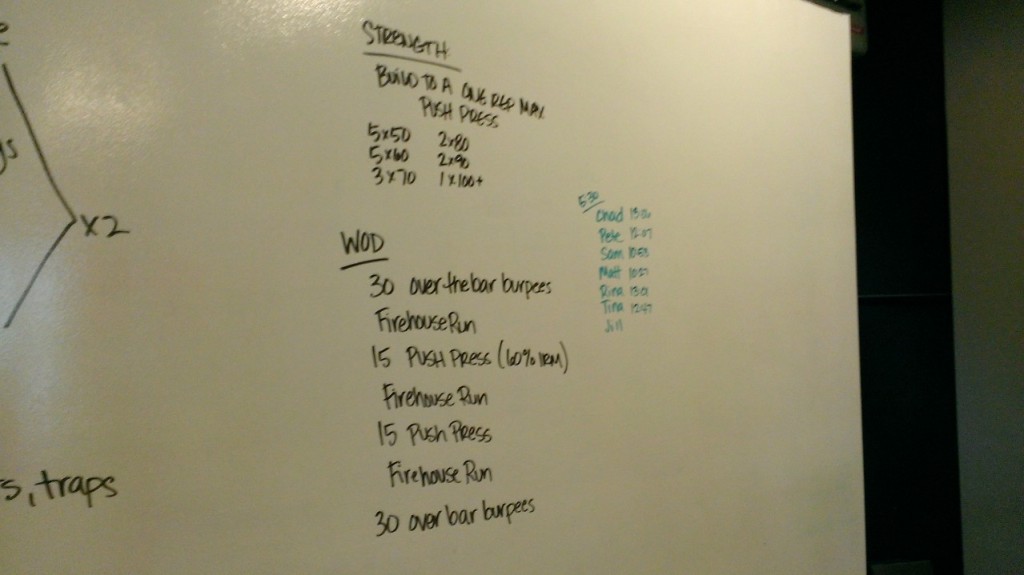 x2
s, traps
STRENGTH
BUILD TO A ONE REP MAX
PUSH PRESS
5x50 2x80
5x60 2x90
3x70 1x100+
WOD
30 over the bar burpees
Firehouse Run
15 PUSH PRESS (60% 1RM)
Firehouse Run
15 PUSH PRESS
Firehouse Run
30 over bar burpees
5:30
Chad
Pete 12:07
Sam 10:53
Matt 10:27
Rina
Tina 12:47
Jill